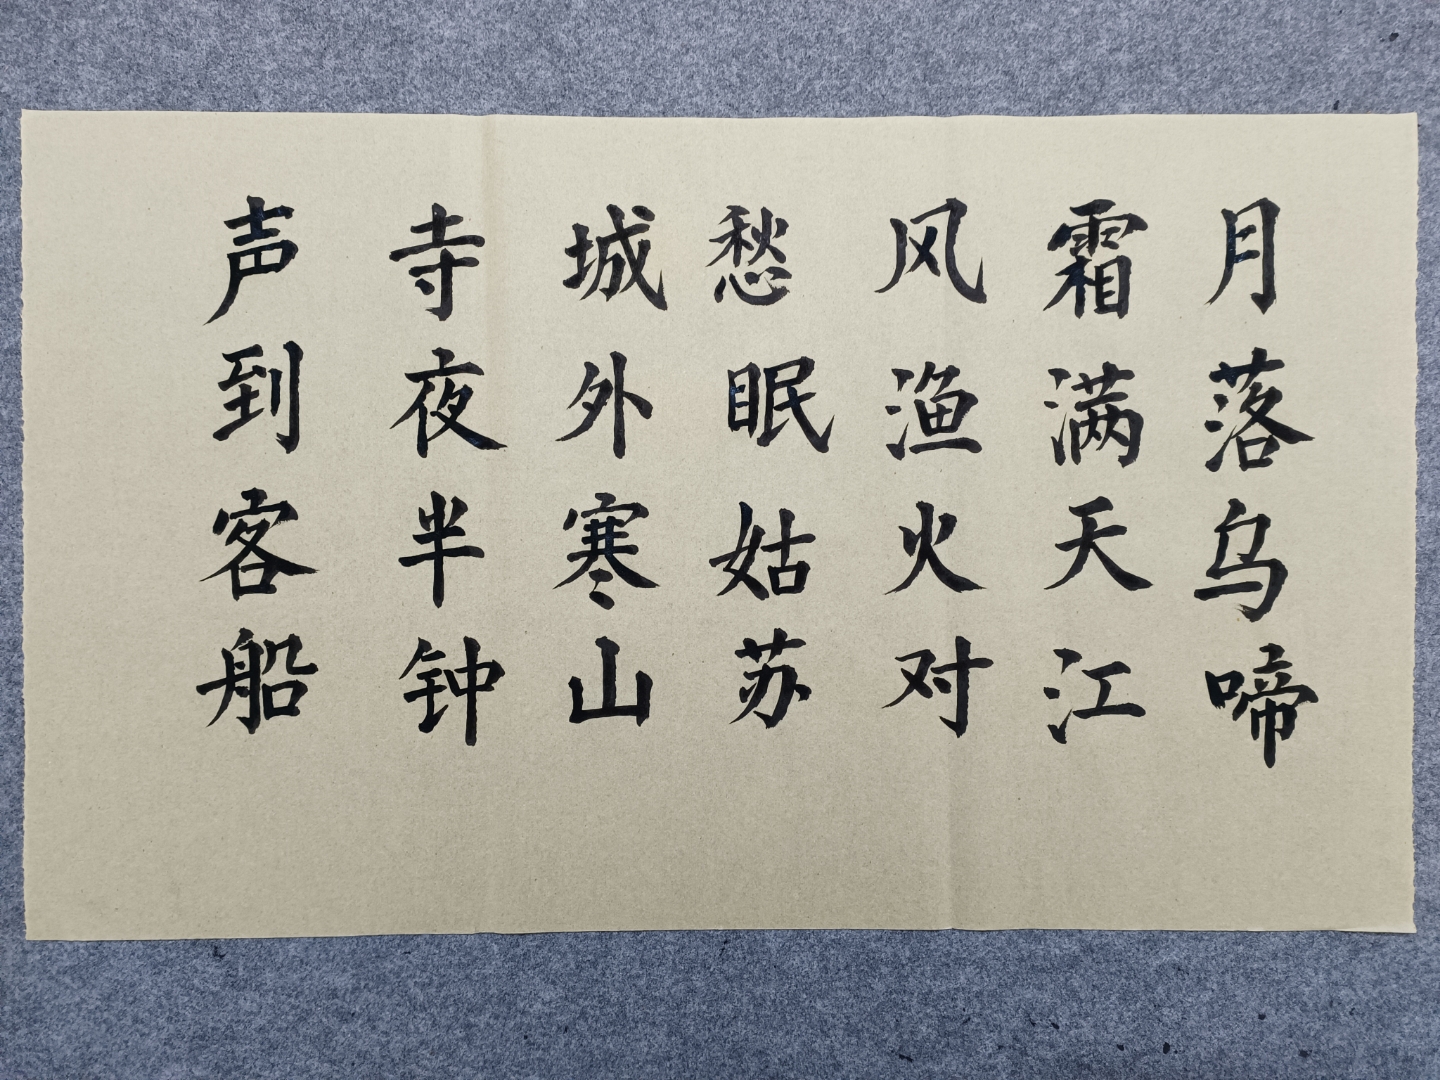 月落乌啼
霜满天江
风渔火对
愁眠姑苏
城外寒山
寺夜半钟
声到客船